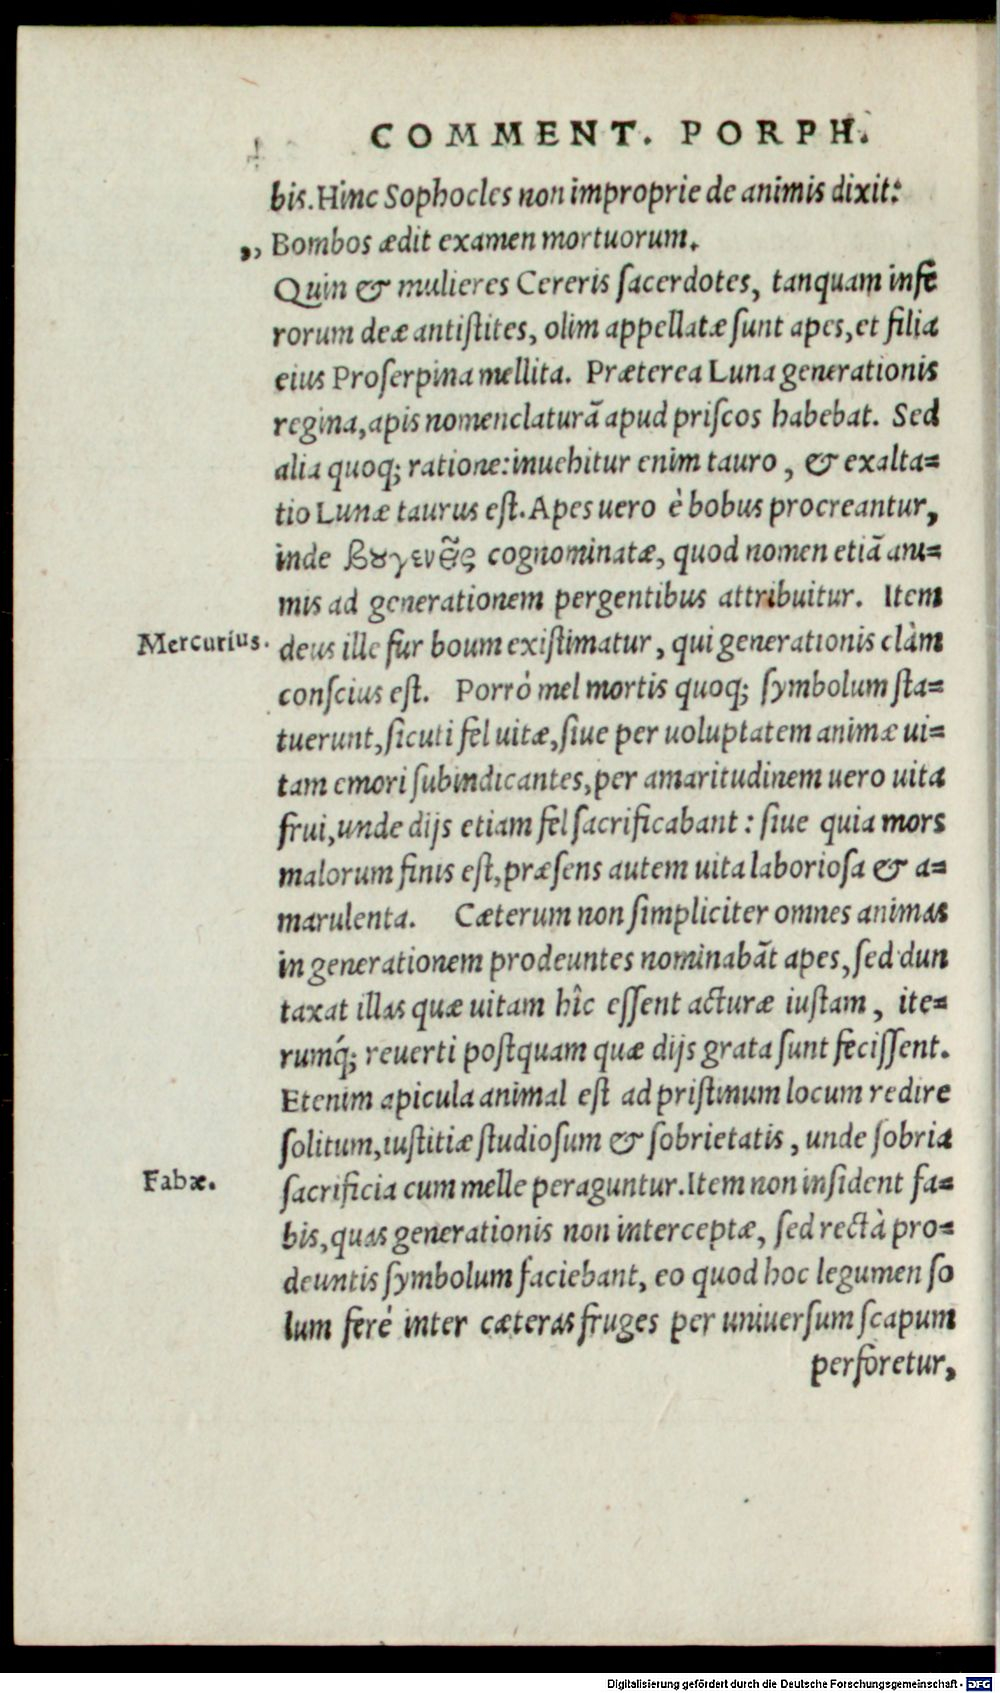 COMMENT. PORPH.
bis. Hinc Sophocles non improprie de animis dixit:
,, Bombos ædit examen mortuorum.
Quin & mulieres Cereris ſacerdotes, tanquam infe
rorum deæ antiſtites, olim appellatæ ſunt apes, et filia
eius Proſerpina mellita. Præterea Luna generationis
regina, apis nomenclaturã apud priſcos habebat. Sed
alia quoq; ratione: inuehitur enim tauro, & exalta=
tio Lunæ taurus eſt. Apes uero è bobus procreantur,
inde βȣγενε͂ς cognominatæ, quod nomen etiã ani=
mis ad generationem pergentibus attribuitur. Item
Mercurius. deus ille fur boum exiſtimatur, qui generationis clàm
conſcius eſt. Porrò mel mortis quoq; ſymbolum ſta=
tuerunt, ſicuti fel uitæ, ſiue per uoluptatem animæ ui=
tam emori ſubindicantes, per amaritudinem uero uita
frui, unde dijs etiam fel ſacrificabant: ſiue quia mors
malorum finis eſt, præſens autem uita laborioſa & a=
marulenta. Cæterum non ſimpliciter omnes animas
in generationem prodeuntes nominabãt apes, ſed dun
taxat illas quæ uitam hîc eſſent acturæ iuſtam, ite=
rumq́; reuerti poſtquam quæ dijs grata ſunt feciſſent.
Etenim apicula animal eſt ad priſtinum locum redire
ſolitum, iuſtitiæ ſtudioſum & ſobrietatis, unde ſobria
Fabæ. ſacrificia cum melle peraguntur. Item non inſident fa=
bis, quas generationis non interceptæ, ſed rectà pro=
deuntis ſymbolum faciebant, eo quod hoc legumen ſo
lum ferè inter cæteras fruges per uniuerſum ſcapum
perforetur,
Digitalisierung gefördert durch die Deutsche Forschungsgemeinschaft - DFG